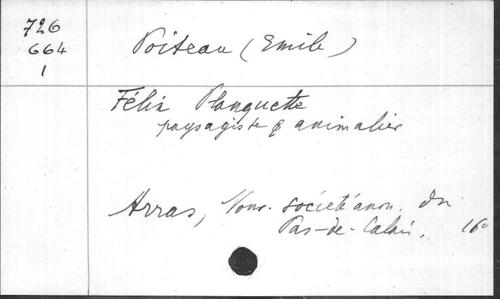 726
664
1
Poiteau (Emile)
Félix Planquette
paysagiste & animalier
Arras, Nouv. société anon. du
Pas-de-Calais. 16°